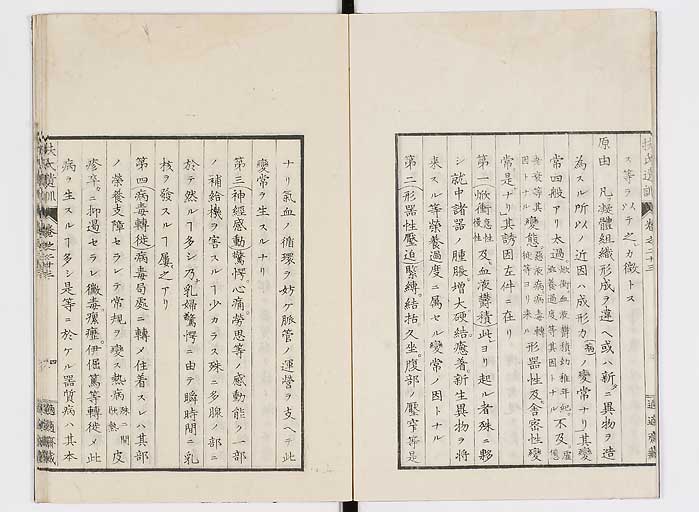 ス等ヲ以テ之カ徴トス
原由 凡ソ人體組織形成ヲ違ヘ或ハ新ニ異物ヲ造
為スル所以ノ近因ハ成形力ノ變常ナリ其變
常四般アリ太過 不及
變態 形器性及舎密性變
常是ナリ其誘因左件ニ在リ
第一焮衝急性慢性及血液鬱積此ヨリ起ル者殊ニ夥
シ就中諸器ノ腫脹増大硬結癒着新生異物ヲ將
来スル等榮養過度ニ属セル變常ノ因トナル
第二形器性壓迫緊縛結括久坐腹部ノ壓窄等是
ナリ氣血ノ循環ヲ妨ケ脈管ノ運營ヲ支ヘテ此
變常ヲ生スルナリ
第三神經感動驚愕心痛勞思等ノ感動能ク一部
ノ補給機ヲ害スルヿ少カラス殊ニ多腺ノ部ニ
於テ然ルヿ多シ乃乳婦驚愕ニ由テ瞬時間ニ乳
核ヲ發スルヿ屢之アリ
第四病毒轉徙病毒局處ニ轉メ住着スレハ其部
ノ榮養支障セラレテ常規ヲ變ス熱病 皮
疹卒ニ抑遏セラレ黴毒瘰癧伊倔篤等轉徙メ此
病ヲ生スルヿ多シ是等ニ於ケル器質病ハ其本
扶氏遺訓 卷之二十三 四